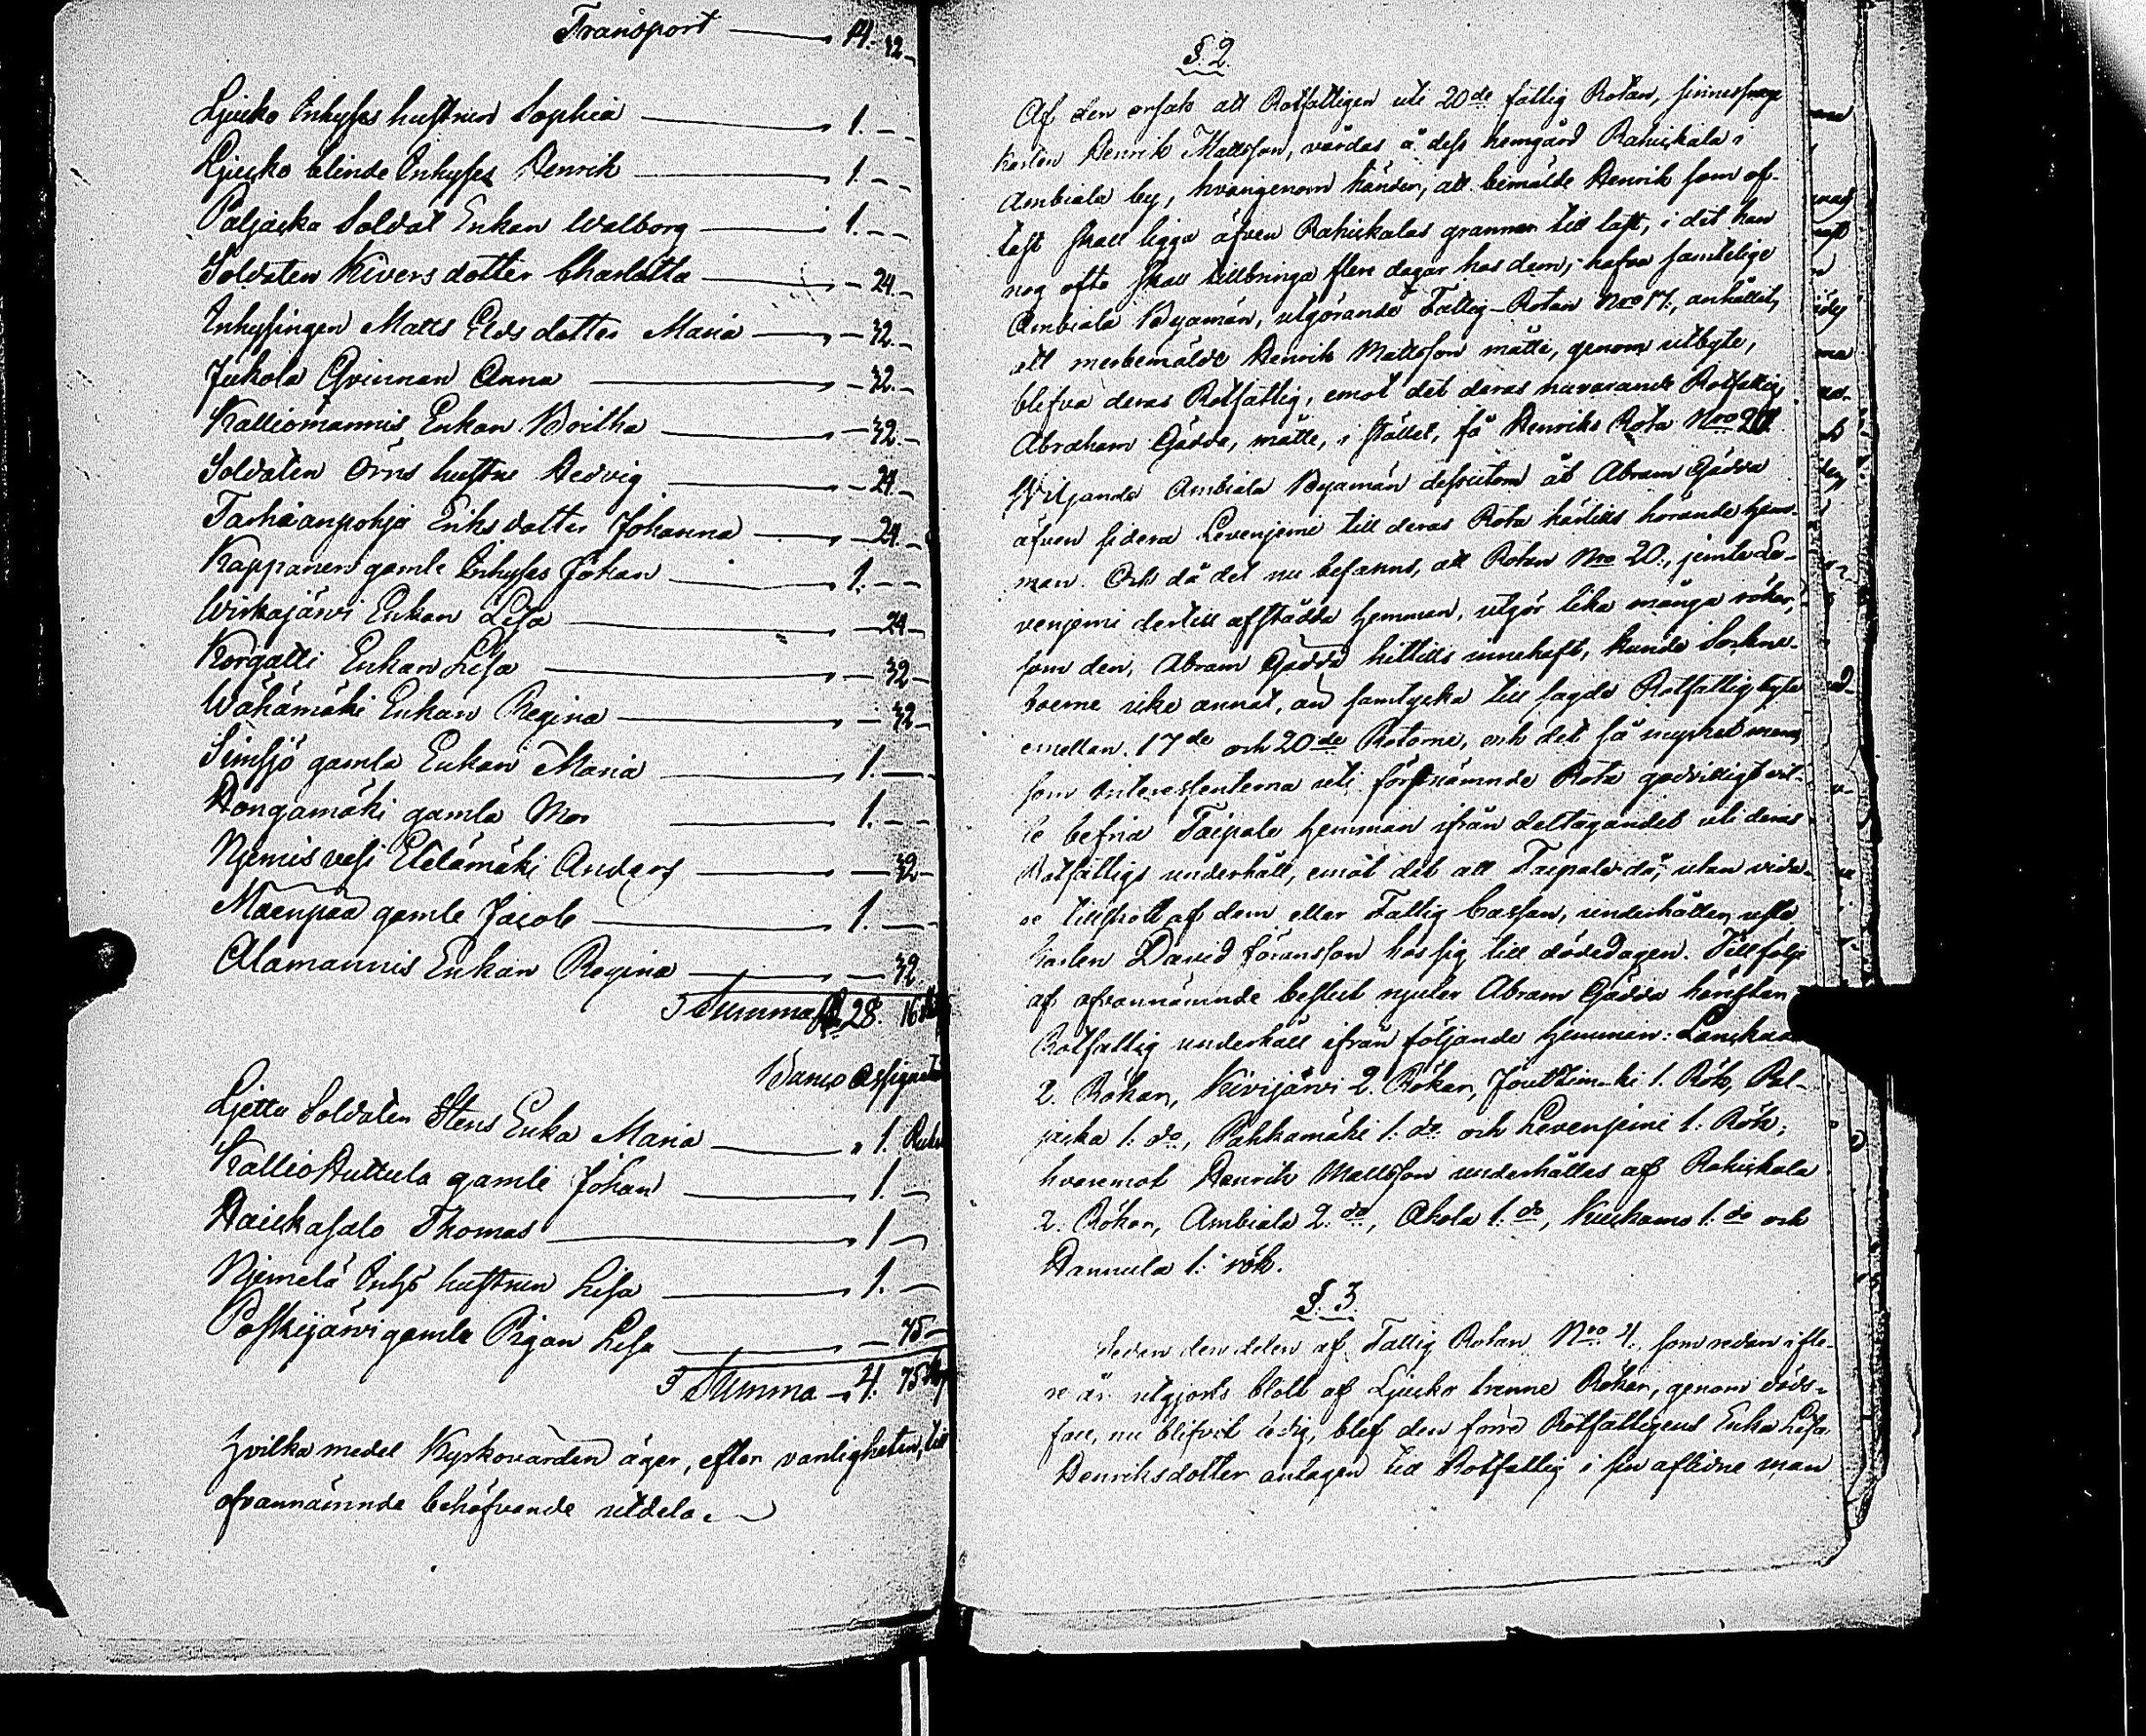 Transport — 14. 32.
Ljucko Inhyses hustrun Sophia — 1. —
Ljucko blinde Inhyses Henrik — 1. — —
Paljacka Soldat Enkan Walborg — 1. — —
Soldaten Kivers dotter Charlotta — 24. —
Inhysingen Matts Elds dotter Maria — 32. —
Jukola Qvinnan Anna — 32. —
Kalliomannis Enkan Britha — 32. —
Soldaten Örns hustru Hedvig — 24. —
Tarhaanpohja Eriks dotter Johanna — 24. —
Kappanen gamle Inhyses Johan — 1. — —
Wirkajärvi Enkan Lisa — 24 —
Korgatti Enkan Lisa — 32 —
Wähämäki Enkan Regina — 32 —
Simsjö gamla Enkan Maria — 1. —
Hongamäki gamla Mor — 1. — —
Njemisvesi Etelämäki Anders — 32 —
Mäenpää gamle Jacob — 1. —
Alamannis Enkan Regina — 32
Summa 28. 16
Banco Assignat
Ljettu Soldaten Stens Enka Maria — 1. Rub
Kallio Huttula gamle Johan — 1. —
Hauckasalo Thomas — 1 —
Njemelä Inhs hustrun Lisa — 1. —
Poskijärvi gamla Pigan Lisa — 75 —
Summa — 4. 75
hvilka medel Kyrkovärden äger, efter vanligheten, till
ofvannämnde behöfvande utdela.
§. 2.
Af den orsak att Rotfattigen uti 20de fattig Rotan, sinnessvage
karlen Henrik Mattsson, vårdas å dess hemgård Rahickala i
Ambiala by, hvarigenom händer, att bemälde Henrik som of-
tast skall ligga äfven Rahickalas grannar till last, i det han
nog ofta skall tillbringa flere dagar hos dem; hafva samtelige
Ambiala Byamän, utgörande Fattig-Rotan Nro 17, anhållit,
att merbemälde Henrik Mattsson måtte, genom utbyte,
blifva deras Rotfattig, emot det deras nuvarande Rotfattig,
Abraham Gädda, måtte, i stället, få Henriks Rota Nro 20.
Viljande Ambiala Byamän dessutom åt Abram Gädda
äfven lidera Levenjemi till deras Rota härtills hörande hem-
man. Och då det nu befanns, att Rotan Nro 20., jemte Le-
venjemi dertill afstådda hemman, utgör lika många rökar,
som den, Abram Gädda hittills innehaft, kunde Sockne-
boerne icke annat, än samtycka till sagde Rotfattig byte
emellan 17de och 20de Rotorne, och det så mycket mera
som Interessenterna uti förstnämnde Rota godvilligt vil-
le befria Taipale hemman ifrån deltagandet uti deras
Rotfattigs underhåll, emot det att Taipale då, utan vida-
re tillskott af dem eller Fattig Cassan, underhåller usle
karlen David Göransson hos sig till dödedagen. Till följe
af ofvannämnde beslut njuter Abram Gädda hädanefter
Rotfattig underhåll ifrån följande hemman:
2. Rökar, Kivijärvi 2. Rökar, 1. Rök, Pal-
jacka 1. do, Pahkamäki 1. do och Levenjemi 1. Rök;
hvaremot Henrik Mattsson underhålles af Rahickala
2. Rökar, Ambiala 2. do, Ahola 1. do, Kuckamo 1. do och
Hannula 1. rök.
§. 3.
Sedan den delen af Fattig Rotan Nro 4., som redan i fle-
re år utgjorts blott af Ljucko trenne Rökar, genom döds-
fall, nu blifvit ledig, blef den förra Rotfattigens Enka Lisa
Henriksdotter antagen till Rotfattig i sin aflidne man